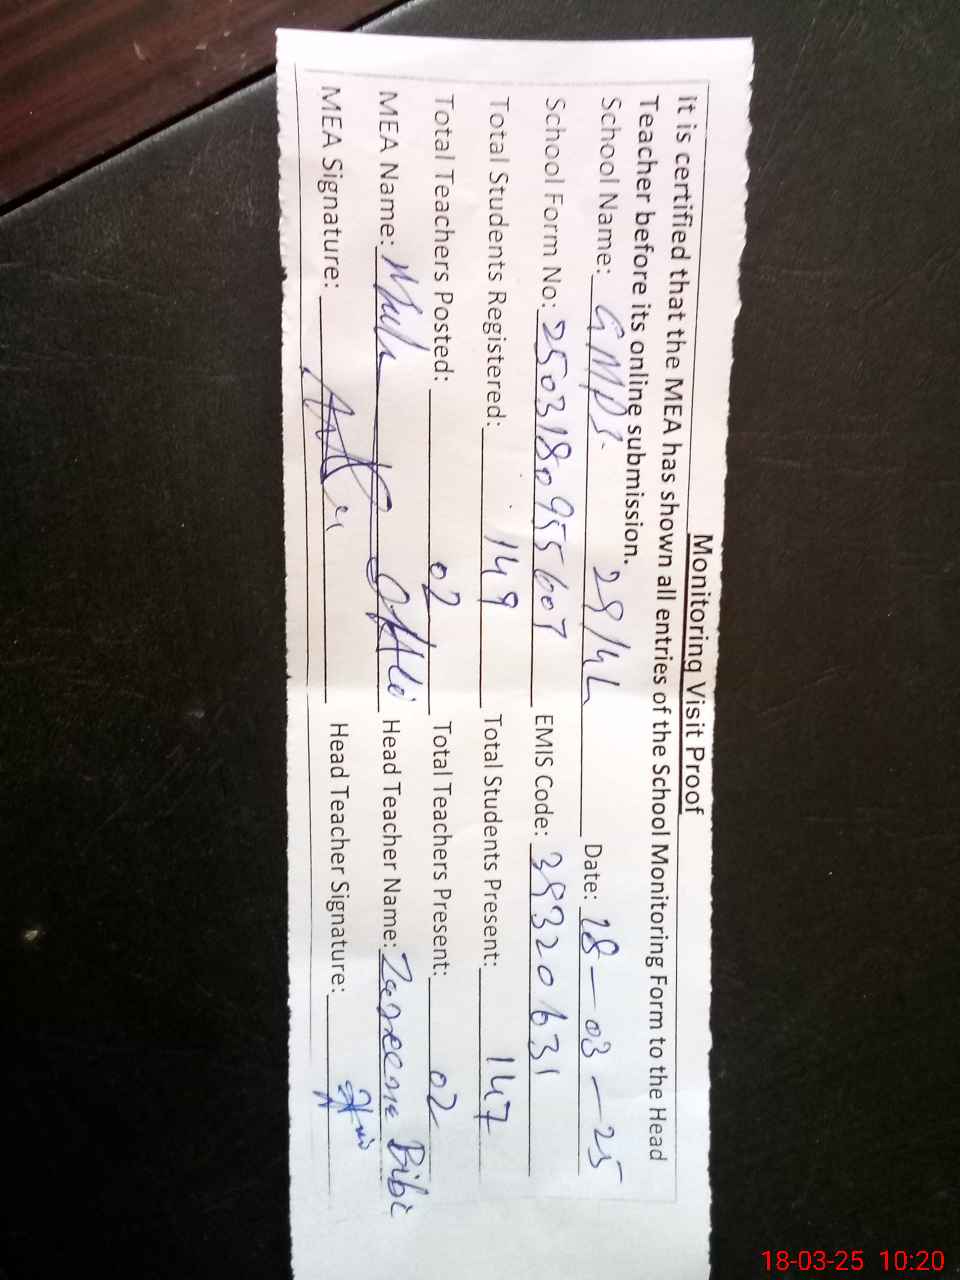 Monitoring Visit Proof
It is certified that the MEA has shown all entries of the School Monitoring Form to the Head
Teacher before its online submission.
School Name: GMPS. 29/4L Date: 18-03-25
School Form No: 2503180955607 EMIS Code: 39320631
Total Students Registered: 149 Total Students Present: 147
Total Teachers Posted: 02 Total Teachers Present: 02
MEA Name: Head Teacher Name: Zareena Bibi
MEA Signature: Head Teacher Signature:
18-03-25 10:20